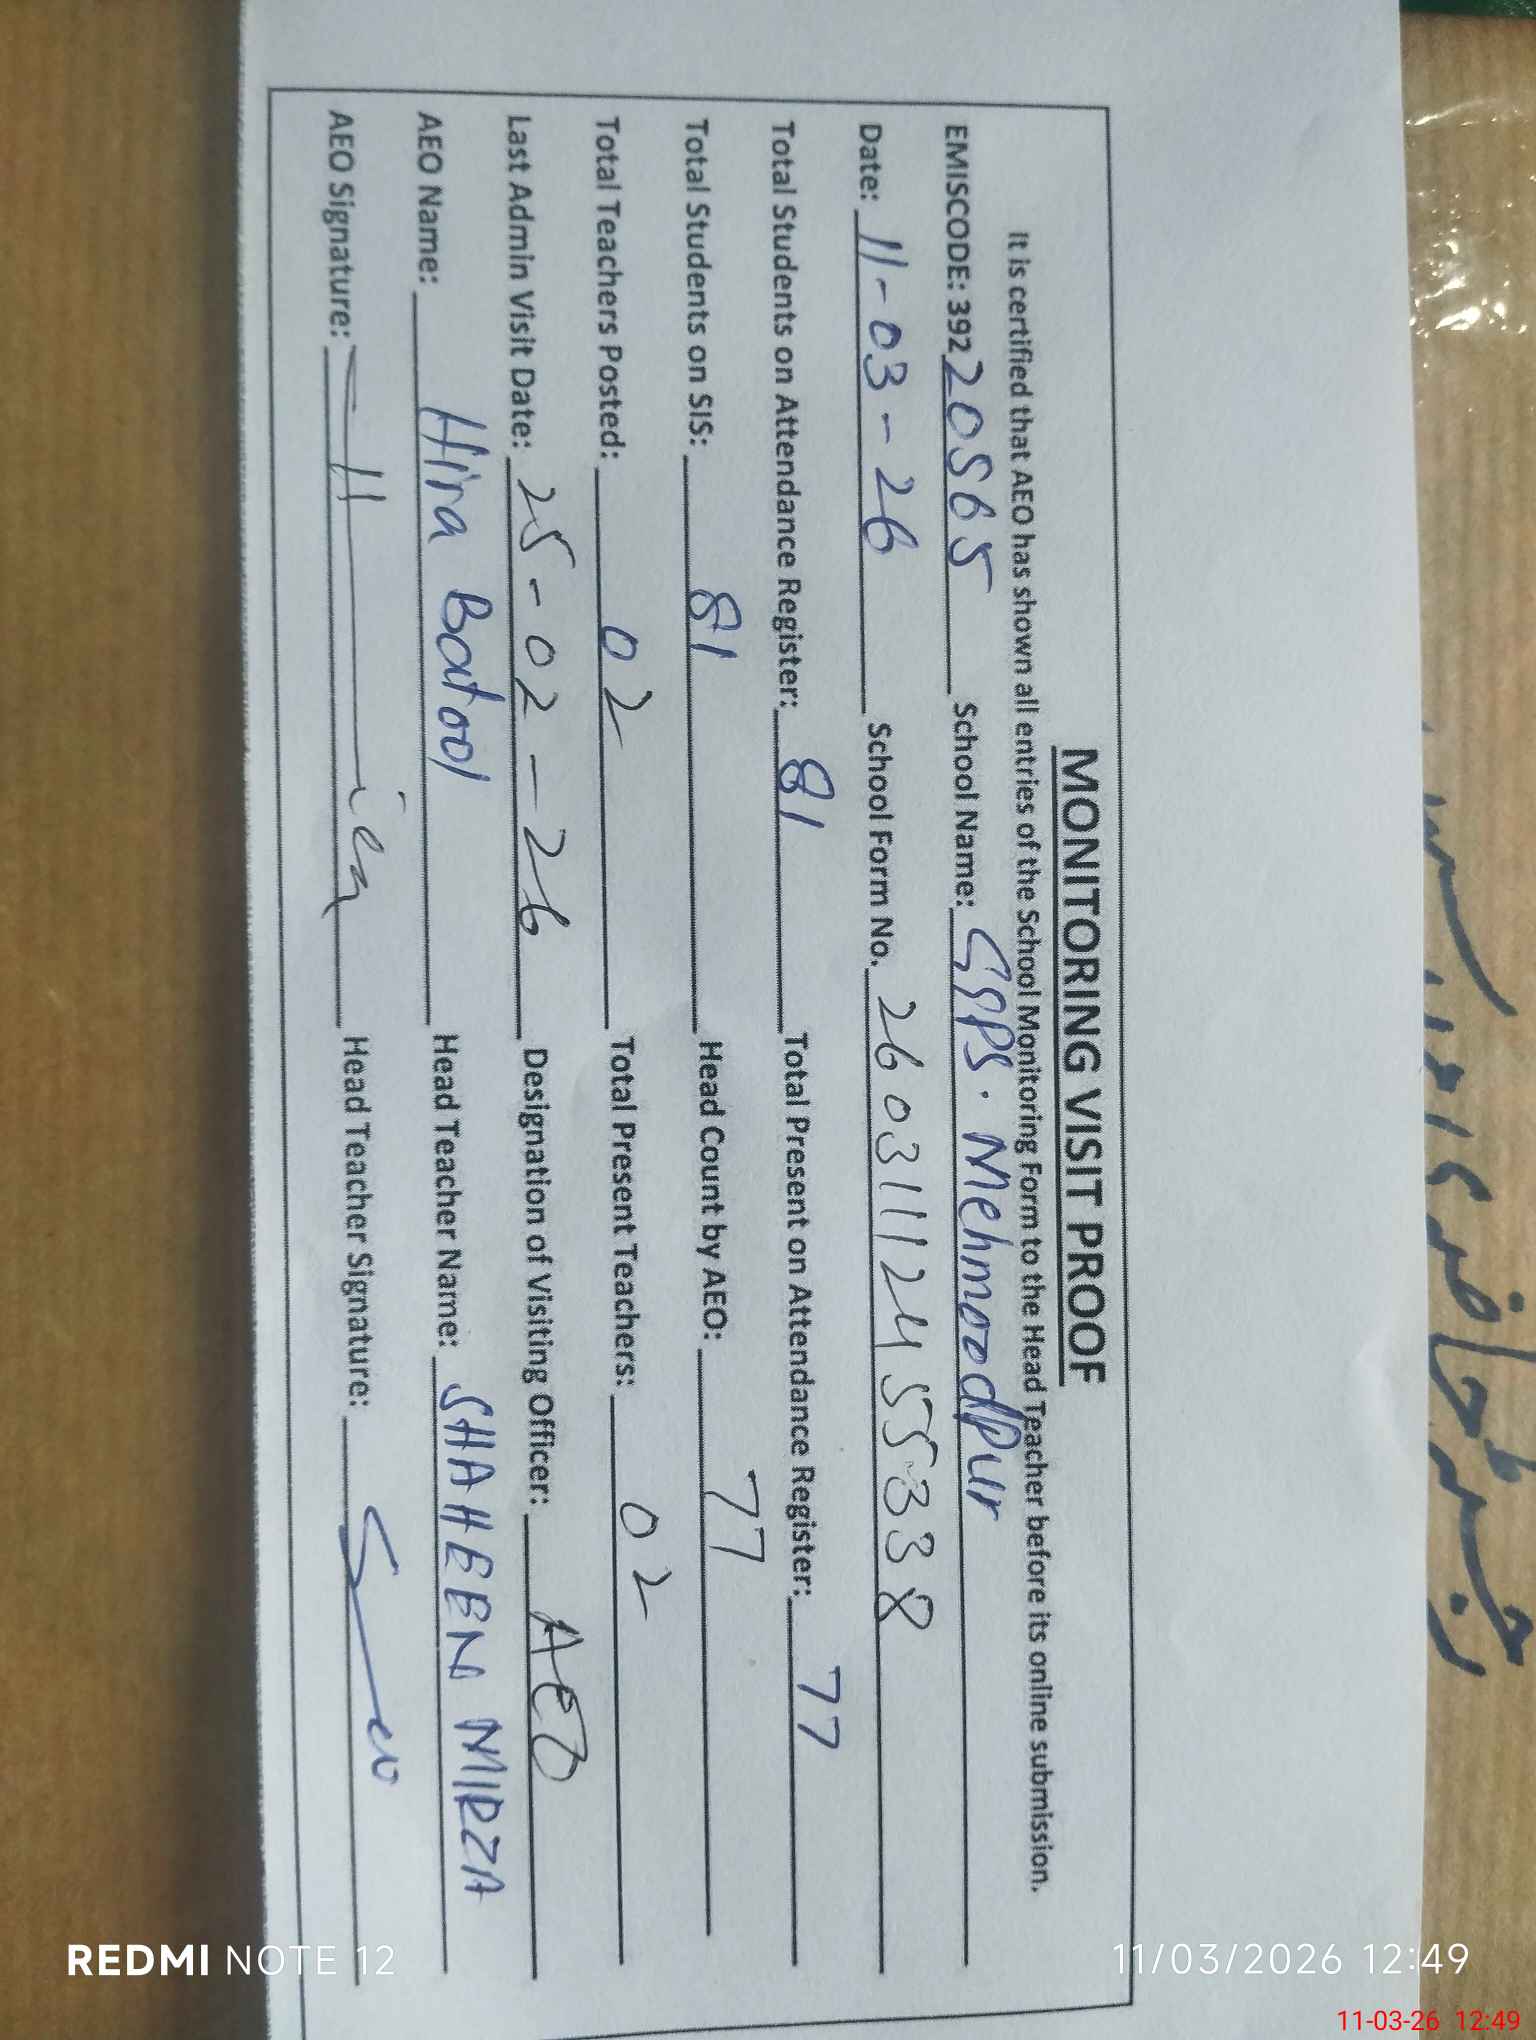 MONITORING VISIT PROOF
It is certified that AEO has shown all entries of the School Monitoring Form to the Head Teacher before its online submission.
EMISCODE: 39220565 School Name: GPS. Mehmoodpur
Date: 11-03-26 School Form No. 26031112455338
Total Students on Attendance Register: 81 Total Present on Attendance Register: 77
Total Students on SIS: 81 Head Count by AEO: 77
Total Teachers Posted: 02 Total Present Teachers: 02
Last Admin Visit Date: 25-02-26 Designation of Visiting Officer: AEO
AEO Name: Hira Batool Head Teacher Name: SHAHEEN MIRZA
AEO Signature: Head Teacher Signature:
رجسٹر حاضری
REDMI NOTE 12
11/03/2026 12:49
11-03-26 12:49